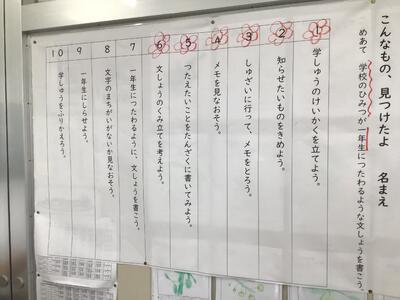 こんなもの、見つけたよ 名まえ
めあて 学校のひみつが一年生につたわるような文しょうを書こう。
1 学しゅうのけいかくを立てよう。
2 知らせたいものをきめよう。
3 しゅざいに行って、メモをとろう。
4 メモを見なおそう。
5 つたえたいことをたんざくに書いてみよう。
6 文しょうのくみ立てを考えよう。
7 一年生につたわるように、文しょうを書こう。
8 文字のまちがいがないか見なおそう。
9 一年生にしらせよう。
10 学しゅうをふりかえろう。